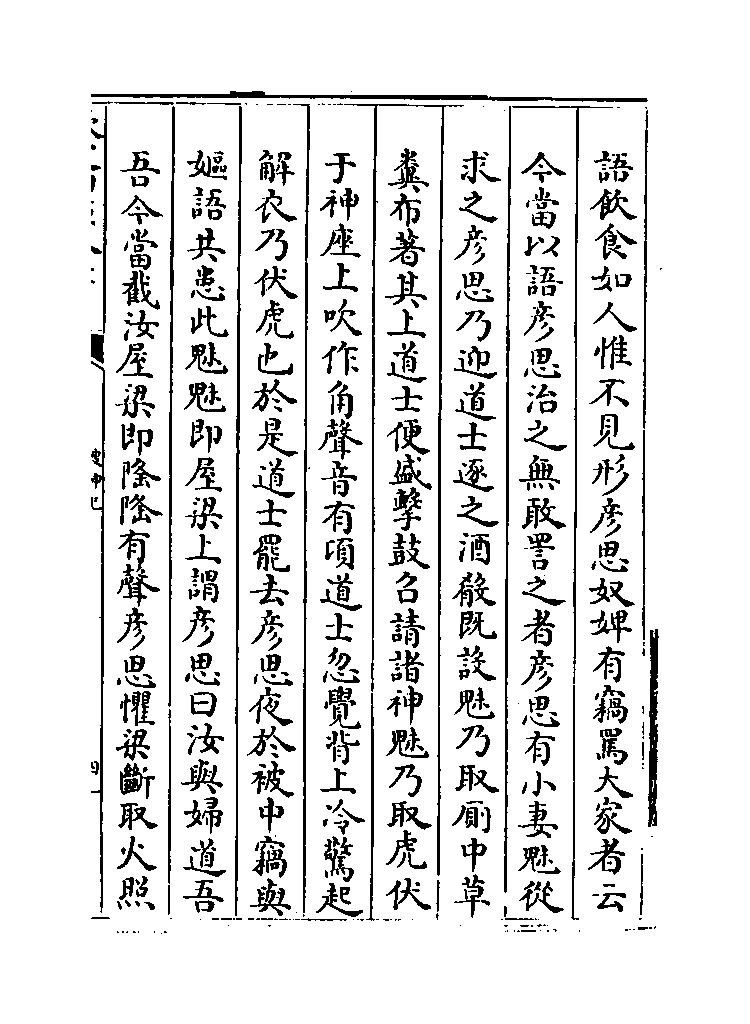 語飲食如人惟不見形彦思奴婢有竊罵大家者云
今當以語彦思治之無敢詈之者彦思有小妻魅從
求之彦思乃迎道士逐之酒殽既設魅乃取厠中草
糞布著其上道士便盛擊鼓召請諸神魅乃取虎伏
于神座上吹作角聲音有頃道士忽覺背上冷驚起
解衣乃伏虎也於是道士罷去彦思夜於被中竊與
嫗語共患此魅魅即屋梁上謂彦思曰汝與婦道吾
吾今當截汝屋梁即隆隆有聲彦思懼梁斷取火照
搜神記